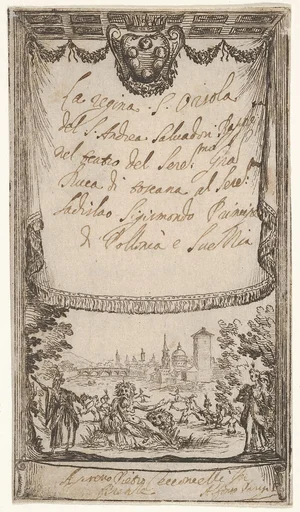 La regina S. Orsola
del S. Andrea Salvadori
nel teatro del Sere.mo Gra
Duca di toscana al Sere.
Ladislao Sigismondo Principe
di Pollonia e Suetia